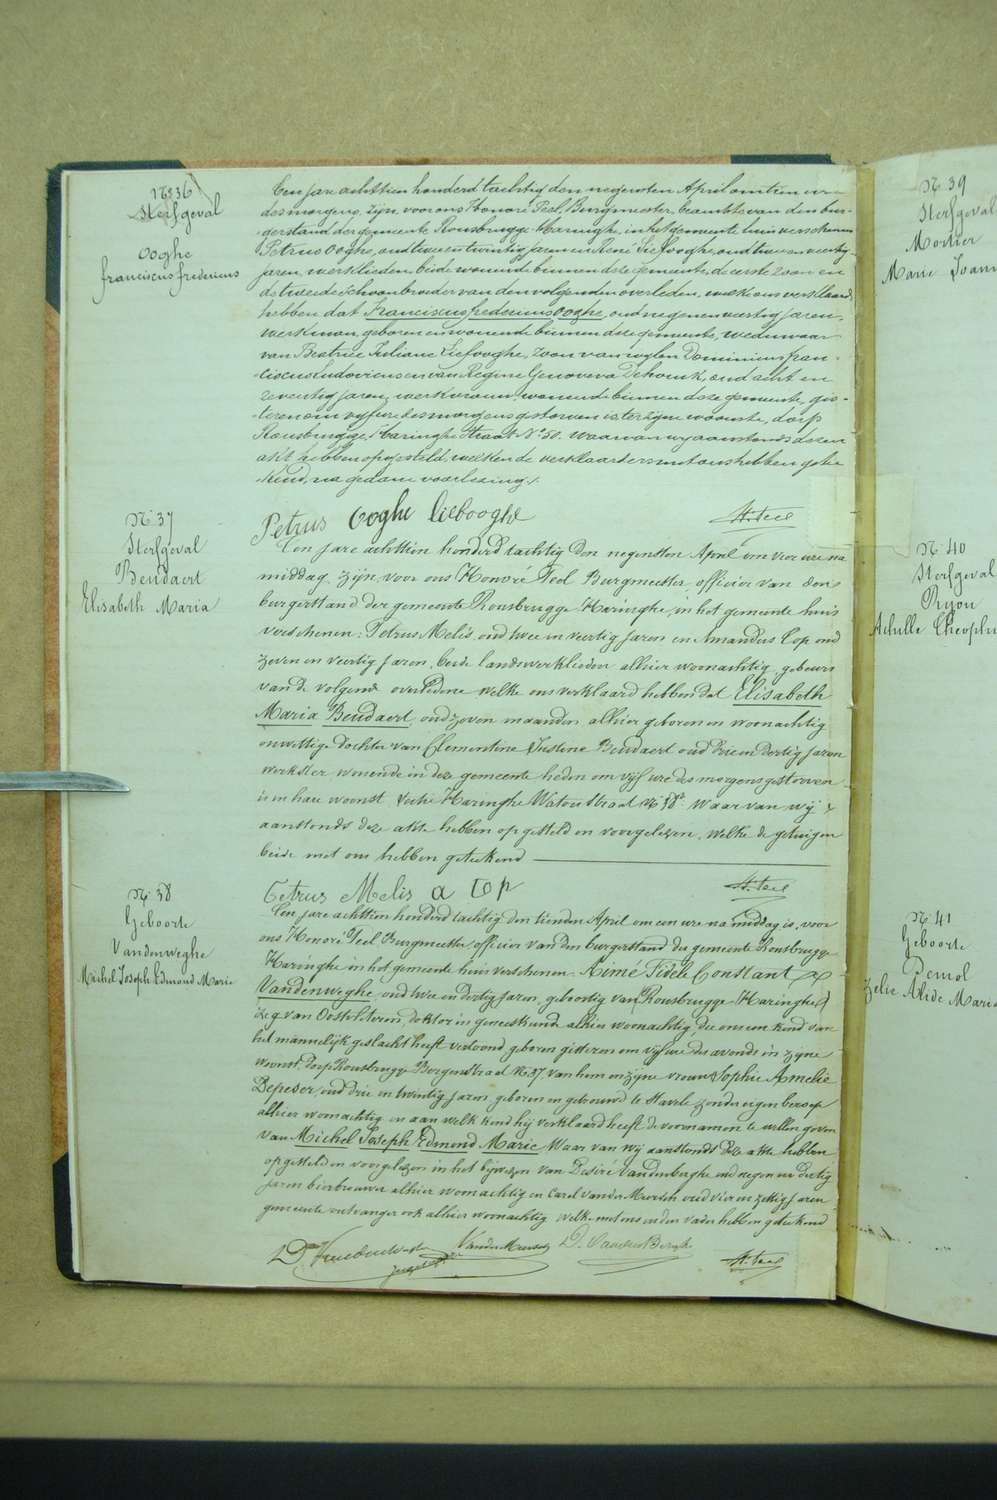 N° 36
Sterfgeval
Ooghe
franciscus fredericus
Een jare achttien honderd tachtig den negensten April omtrent
des morgens, zijn, voor ons Honoré Teel, Burgmeester, beambte van den bur-
gerstand der gemeente Rousbrugge-Haringhe, in het gemeente huis verschenen
Petrus Ooghe, oud twee en twintig jaren en René Liefooghe, oud
jaren, werklieden beide wonende binnen deze gemeente, de eerste zoon en
de tweede schoonbroeder van den volgenden overleden, welke ons verklaard
hebben dat Franciscus fredericus Ooghe, oud negen en veertig jaren,
werkman, geboren en wonende binnen deze gemeente, weduwaar
van Beatrice Juliane Liefooghe, zoon van wylen Dominicus fran-
ciscus Ludovicus en van Regine Genoveva Dehouck, oud acht en
zeventig jaren, werkvrouw, wonende binnen deze gemeente, gis-
teren om vyf ure des morgens gestorven is ter zyne woonste, dorp
Rousbrugge, Haringhe Straat N° 50. waarvan wy aanstonds dezen
akt hebben opgesteld, welken de verklaarders met ons hebben getee-
kend, na gedane voorlezing.
Petrus Ooghe Liebooghe H. Teel
N° 37
Sterfgeval
Beudaert
Elisabeth Maria
Een jare achttien honderd tachtig den negensten April om vier ure na
middag, zijn, voor ons Honoré Teel Burgmeester officier van den
burgerstand der gemeente Rousbrugge-Haringhe, in het gemeente huis
verschenen: Petrus Melis, oud twee in veertig jaren en Amandus Cop oud
zeven en veertig jaren, beide landswerklieden alhier woonachtig, gebuers
van de volgende overledene welke ons verklaard hebben dat Elisabeth
Maria Beudaert, oud zeven maanden alhier geboren en woonachtig
onwettige dochter van Clementine Justine Beudaert oud drie en dertig jaren
werkster wonende in deze gemeente heden om vijf ure des morgens gestorven
is in hare woonst Haringhe Watoustraat N° 18 Waar van wij
aanstonds deze akte hebben opgesteld en voorgelezen, welke de getuigen
beide met ons hebben geteekend
Petrus Melis a Cop H. Teel
N° 38
Geboorte
Vandenweghe
Michel Joseph Edmond Marie
Een jare achttien honderd tachtig den tienden April om een ure na middag is, voor
ons Honoré Teel Burgmeester officier van den burgerstand der gemeente Rousbrugge
Haringhe in het gemeente huis verschenen Aimé Fidele Constant
Vandenweghe, oud twee en dertig jaren, geboortig van Rousbrugge-Haringhe
doktor in geneeskunde alhier woonachtig, die ons een kind van
het mannelijk geslacht heeft vertoond, geboren gisteren om vijf ure des avonds in zijne
woonst, dorp Rousbrugge Bergenstraat N° 37, van hem en zijne vrouw Sophie Amelie
Depeser, oud drie en twintig jaren, geboren en gebouwd te Stavele zonder eigen beroep
alhier woonachtig en aan welk kind hij verklaard heeft de voornamen te willen geven
van Michel Joseph Edmond Marie. Waar van wij aanstonds deze akte hebben
opgesteld en voorgelezen in het bijwezen van Desiré Vandenberghe oud negen en dertig
jaren bierbrouwer alhier woonachtig en Carel Vander Meersch oud vier en zestig jaren
gemeente ontvanger ook alhier woonachtig welke met ons en den vader hebben geteekend
Vander Meersch D. Vanden Berghe H. Teel
N° 39
Sterfgeval
Mortier
Marie Joann
N° 40
Sterfgeval
Ryon
Achille Theophi
N° 41
Geboorte
Demol
Zelie Alide Maria